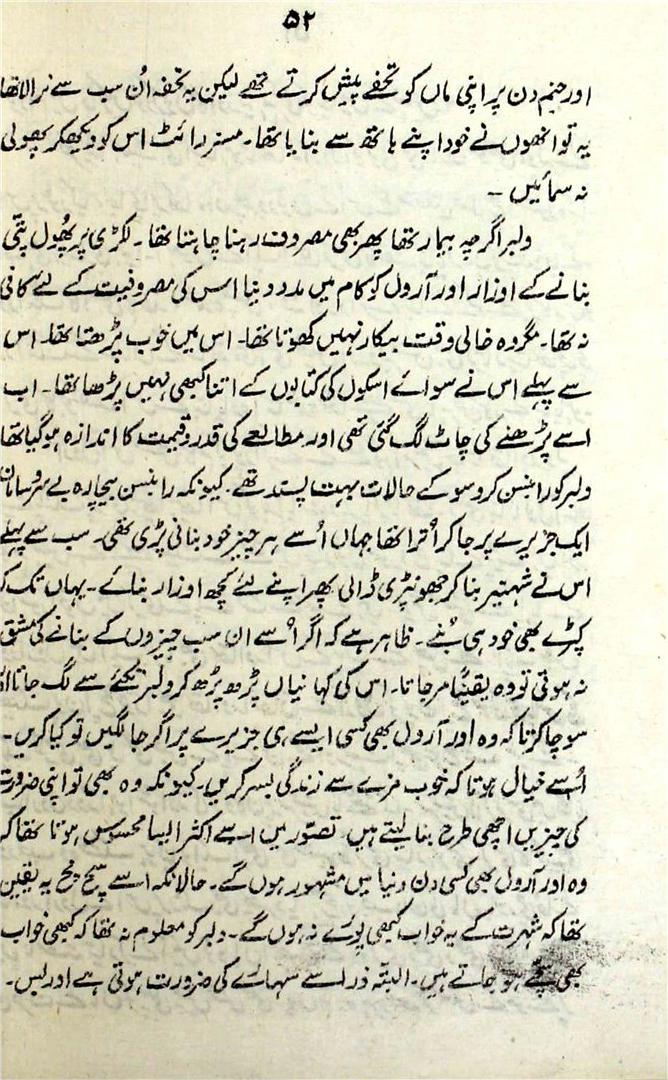 ۵۲
اور جنم دن پر اپنی ماں کو تحفے پیش کرتے تھے لیکن یہ تحفہ اُن سب سے نرالا تھا
یہ تو انھوں نے خود اپنے ہاتھ سے بنایا تھا۔ مسز رائٹ اس کو دیکھکر پھولی
نہ سمائیں ۔
ولبر اگرچہ بیمار تھا پھر بھی مصروف رہنا چاہتا تھا۔ لکڑی پر پھُول پتّی
بنانے کے اوزار اور آرول کو کام میں مدد دینا اس کی مصروفیت کے لئے کافی
نہ تھا۔ مگر وہ خالی وقت بیکار نہیں کھوتا تھا۔ اس میں خوب پڑھتا تھا۔ اس
سے پہلے اس نے سوائے اسکول کی کتابوں کے اتنا کبھی نہیں پڑھا تھا۔ اب
اسے پڑھنے کی چاٹ لگ گئی تھی اور مطالعے کی قدر و قیمت کا اندازہ ہو گیا تھا
ولبر کو رابنسن کروسو کے حالات بہت پسند تھے۔ کیونکہ رابنسن بیچارہ بے سروسامان
ایک جزیرے پر جا کر اُترا تھا جہاں اُسے ہر چیز خود بنانی پڑی تھی۔ سب سے پہلے
اس نے شہتیر بنا کر جھونپڑی ڈالی پھر اپنے لئے کچھ اوزار بنائے۔ یہاں تک کہ
کپڑے بھی خود ہی بُنے۔ ظاہر ہے کہ اگر اُسے ان سب چیزوں کے بنانے کی مشق
نہ ہوتی تو وہ یقیناً مر جاتا۔ اس کی کہانیاں پڑھ پڑھ کر ولبر تکئے سے لگ جاتا اور
سوچا کرتا کہ وہ اور آرول بھی کسی ایسے ہی جزیرے پر اگر جا لگیں تو کیا کریں۔
اُسے خیال ہوتا کہ خوب مزے سے زندگی بسر کریں۔ کیونکہ وہ بھی تو اپنی ضرورت
کی چیزیں اچھی طرح بنا لیتے ہیں۔ تصوّر میں اسے اکثر ایسا محسوس ہوتا تھا کہ
وہ اور آرول بھی کسی دن دنیا میں مشہور ہوں گے۔ حالانکہ اسے سچ مچ یہ یقین
تھا کہ شہرت کے یہ خواب کبھی پورے نہ ہوں گے۔ ولبر کو معلوم نہ تھا کہ کبھی خواب
بھی سچّے ہو جاتے ہیں۔ البتّہ ذرا سے سہارے کی ضرورت ہوتی ہے اور بس۔